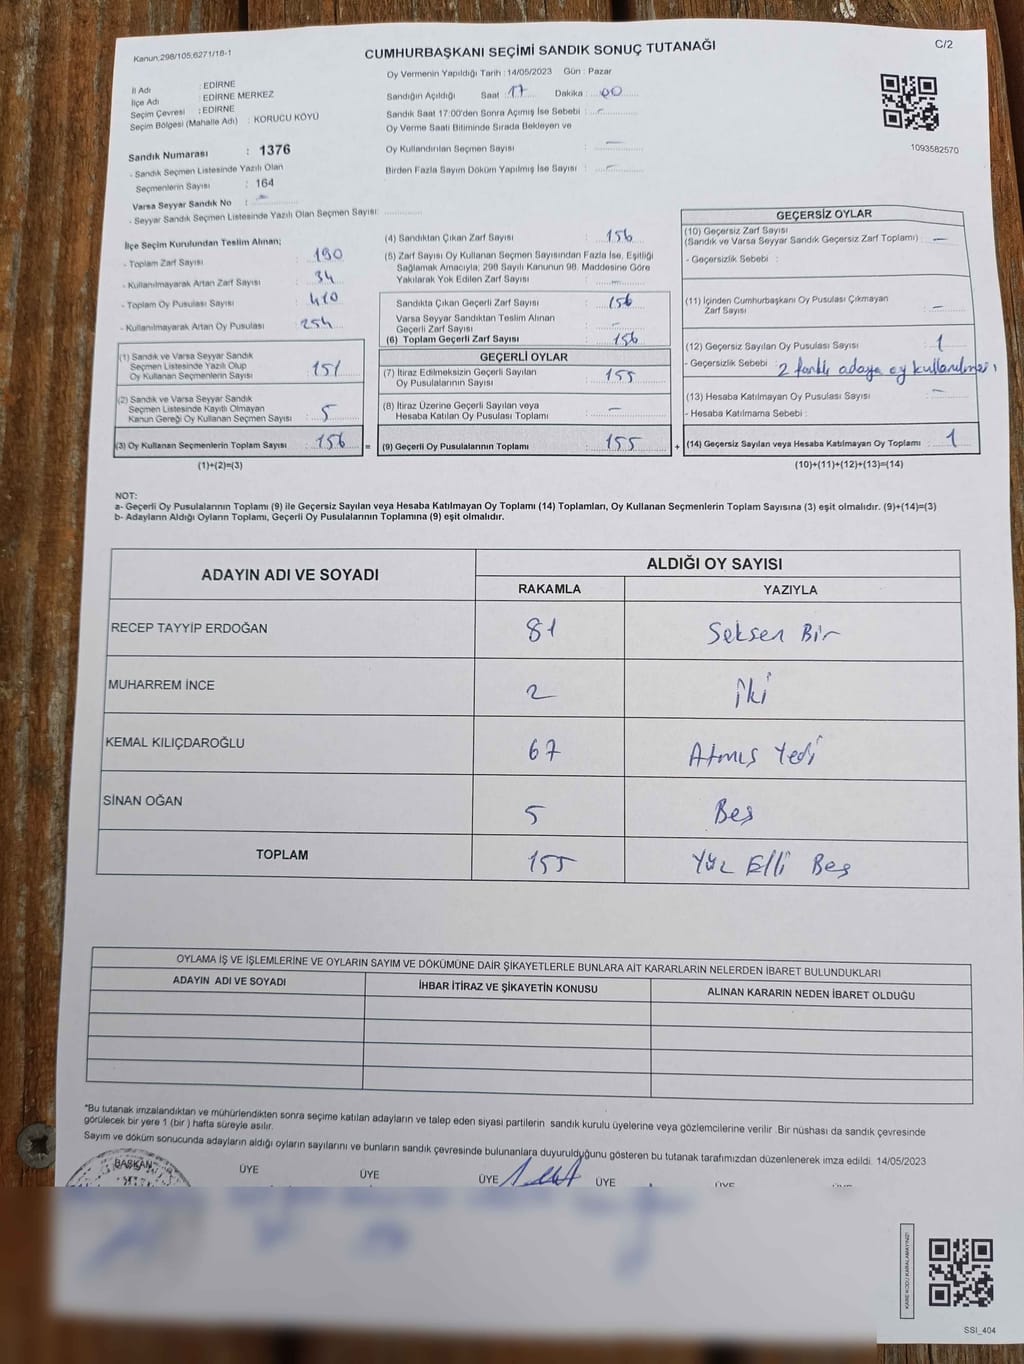 Kanun:298/105;6271/18-1
CUMHURBAŞKANI SEÇİMİ SANDIK SONUÇ TUTANAĞI
C/2
İl Adı : EDİRNE
İlçe Adı : EDİRNE MERKEZ
Seçim Çevresi : EDİRNE
Seçim Bölgesi (Mahalle Adı) : KORUCU KÖYÜ
Sandık Numarası : 1376
- Sandık Seçmen Listesinde Yazılı Olan
Seçmenlerin Sayısı : 164
Varsa Seyyar Sandık No : –
- Seyyar Sandık Seçmen Listesinde Yazılı Olan Seçmen Sayısı:
Oy Vermenin Yapıldığı Tarih : 14/05/2023 Gün : Pazar
Sandığın Açıldığı Saat : 17 Dakika : 00
Sandık Saat 17:00'den Sonra Açımış İse Sebebi : –
Oy Verme Saati Bitiminde Sırada Bekleyen ve
Oy Kullandırılan Seçmen Sayısı : –
Birden Fazla Sayım Döküm Yapılmış İse Sayısı : –
1093582570
İlçe Seçim Kurulundan Teslim Alınan;
- Toplam Zarf Sayısı : 190
- Kullanılmayarak Artan Zarf Sayısı : 34
- Toplam Oy Pusulası Sayısı : 410
- Kullanılmayarak Artan Oy Pusulası : 254
(1) Sandık ve Varsa Seyyar Sandık
Seçmen Listesinde Yazılı Olup
Oy Kullanan Seçmenlerin Sayısı : 151
(2) Sandık ve Varsa Seyyar Sandık
Seçmen Listesinde Kayıtlı Olmayan
Kanun Gereği Oy Kullanan Seçmen Sayısı : 5
(3) Oy Kullanan Seçmenlerin Toplam Sayısı : 156 =
(1)+(2)=(3)
(4) Sandıktan Çıkan Zarf Sayısı : 156
(5) Zarf Sayısı Oy Kullanan Seçmen Sayısından Fazla İse, Eşitliği
Sağlamak Amacıyla; 298 Sayılı Kanunun 98. Maddesine Göre
Yakılarak Yok Edilen Zarf Sayısı : –
Sandıkta Çıkan Geçerli Zarf Sayısı : 156
Varsa Seyyar Sandıktan Teslim Alınan
Geçerli Zarf Sayısı : –
(6) Toplam Geçerli Zarf Sayısı : 156
GEÇERLİ OYLAR
(7) İtiraz Edilmeksizin Geçerli Sayılan
Oy Pusulalarının Sayısı : 155
(8) İtiraz Üzerine Geçerli Sayılan veya
Hesaba Katılan Oy Pusulası Toplamı : –
(9) Geçerli Oy Pusulalarının Toplamı : 155 +
GEÇERSİZ OYLAR
(10) Geçersiz Zarf Sayısı
(Sandık ve Varsa Seyyar Sandık Geçersiz Zarf Toplamı) : –
- Geçersizlik Sebebi :
(11) İçinden Cumhurbaşkanı Oy Pusulası Çıkmayan
Zarf Sayısı : –
(12) Geçersiz Sayılan Oy Pusulası Sayısı : 1
- Geçersizlik Sebebi : 2 farklı adaya oy kullanılması
(13) Hesaba Katılmayan Oy Pusulası Sayısı : –
- Hesaba Katılmama Sebebi :
(14) Geçersiz Sayılan veya Hesaba Katılmayan Oy Toplamı : 1
(10)+(11)+(12)+(13)=(14)
NOT:
a- Geçerli Oy Pusulalarının Toplamı (9) ile Geçersiz Sayılan veya Hesaba Katılmayan Oy Toplamı (14) Toplamları, Oy Kullanan Seçmenlerin Toplam Sayısına (3) eşit olmalıdır. (9)+(14)=(3)
b- Adayların Aldığı Oyların Toplamı, Geçerli Oy Pusulalarının Toplamına (9) eşit olmalıdır.
ADAYIN ADI VE SOYADI
ALDIĞI OY SAYISI
RAKAMLA YAZIYLA
RECEP TAYYİP ERDOĞAN 81 Seksen Bir
MUHARREM İNCE 2 İki
KEMAL KILIÇDAROĞLU 67 Atmış Yedi
SİNAN OĞAN 5 Beş
TOPLAM 155 Yüz Elli Beş
OYLAMA İŞ VE İŞLEMLERİNE VE OYLARIN SAYIM VE DÖKÜMÜNE DAİR ŞİKAYETLERLE BUNLARA AİT KARARLARIN NELERDEN İBARET BULUNDUKLARI
ADAYIN ADI VE SOYADI İHBAR İTİRAZ VE ŞİKAYETİN KONUSU ALINAN KARARIN NEDEN İBARET OLDUĞU
*Bu tutanak imzalandıktan ve mühürlendikten sonra seçime katılan adayların ve talep eden siyasi partilerin sandık kurulu üyelerine veya gözlemcilerine verilir .Bir nüshası da sandık çevresinde
görülecek bir yere 1 (bir ) hafta süreyle asılır.
Sayım ve döküm sonucunda adayların aldığı oyların sayılarını ve bunların sandık çevresinde bulunanlara duyurulduğunu gösteren bu tutanak tarafımızdan düzenlenerek imza edildi. 14/05/2023
BAŞKAN ÜYE ÜYE ÜYE ÜYE ÜYE
KARE KODU KARALAMAYINIZ!
SSI_404